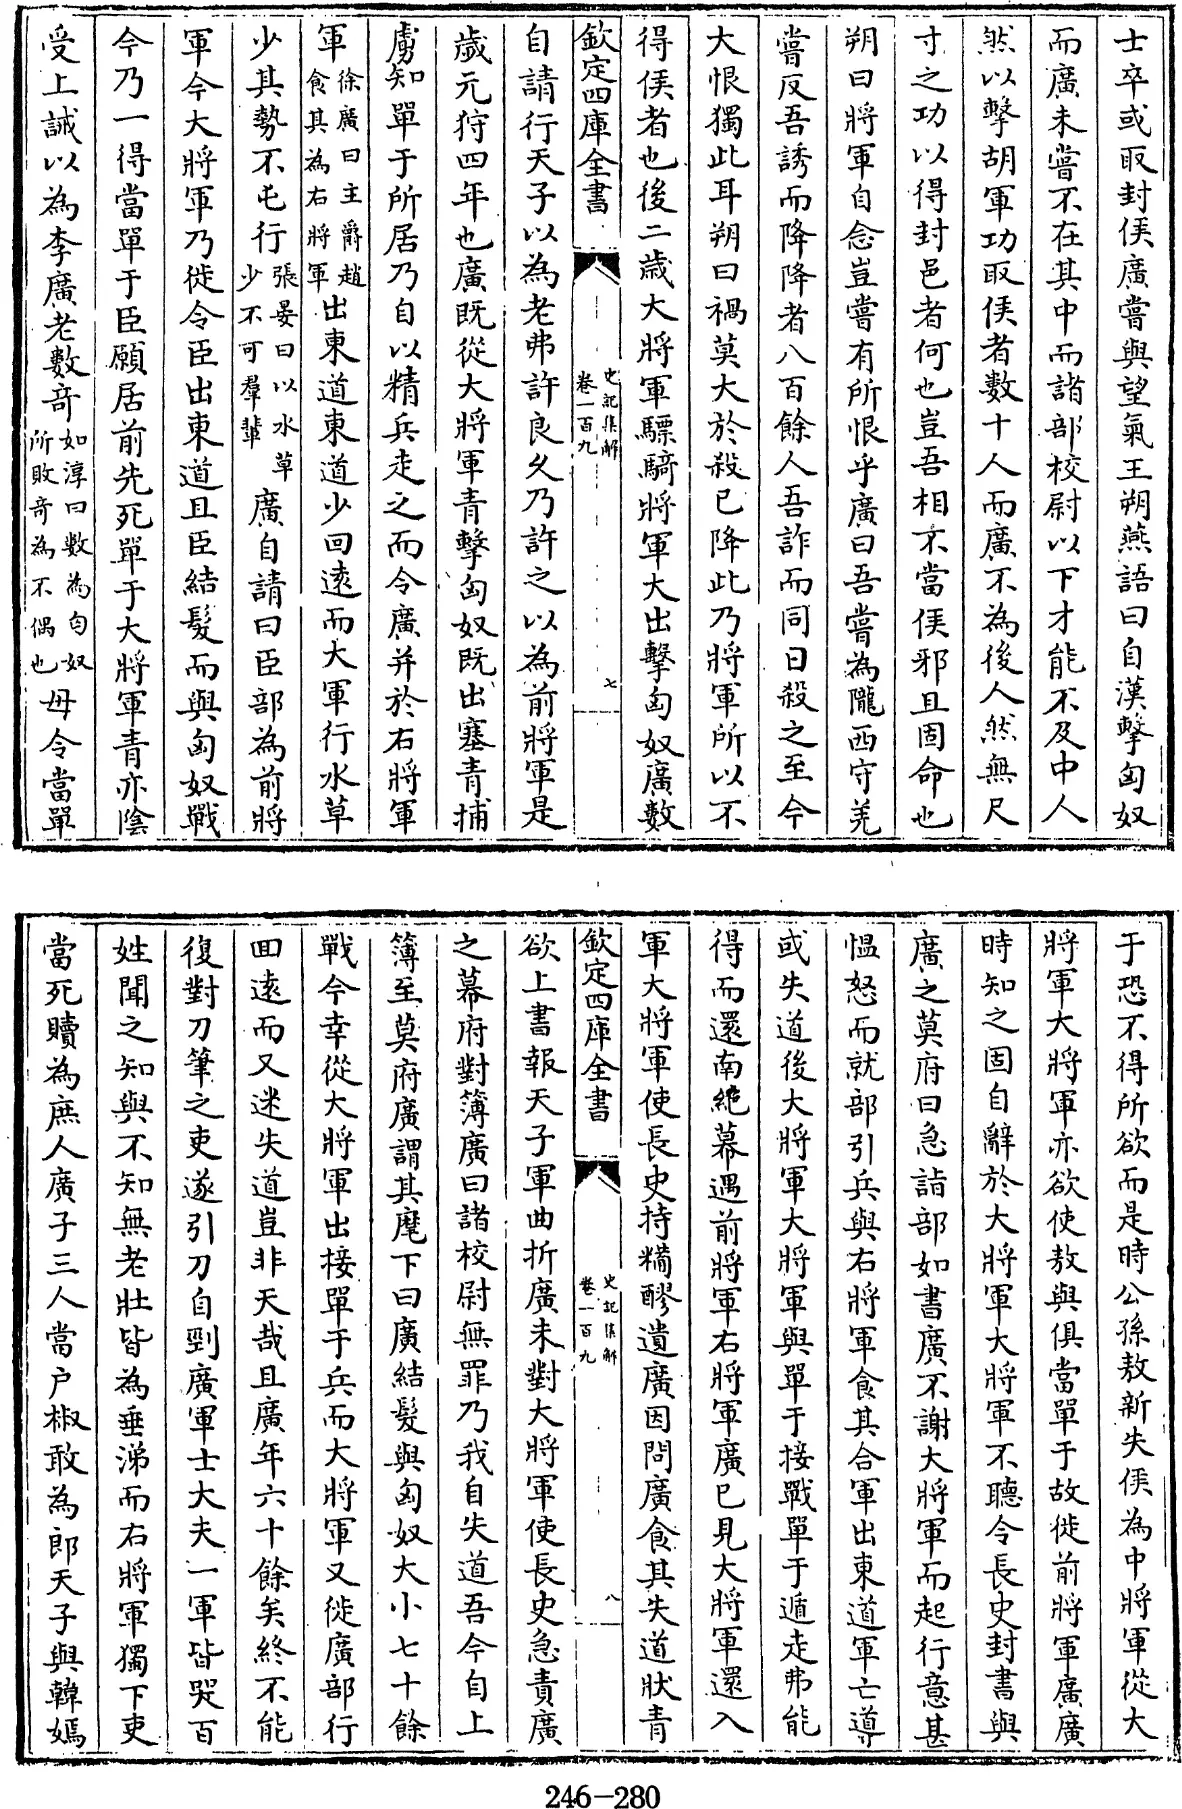 士卒或取封侯廣嘗與望氣王朔燕語曰自漢擊匈奴
而廣未嘗不在其中而諸部校尉以下才能不及中人
然以擊胡軍功取侯者數十人而廣不為後人然無尺
寸之功以得封邑者何也豈吾相不當侯邪且固命也
朔曰將軍自念豈嘗有所恨乎廣曰吾嘗為隴西守羌
嘗反吾誘而降降者八百餘人吾詐而同日殺之至今
大恨獨此耳朔曰禍莫大於殺已降此乃將軍所以不
得侯者也後二歲大將軍驃騎將軍大出擊匈奴廣數
欽定四庫全書
史記集解
卷一百九
七
自請行天子以為老弗許良久乃許之以為前將軍是
歲元狩四年也廣既從大將軍青擊匈奴既出塞青捕
虜知單于所居乃自以精兵走之而令廣并於右將軍
軍徐廣曰主爵趙食其為右將軍出東道東道少回遠而大軍行水草
少其勢不屯行張晏曰以水草少不可羣輩廣自請曰臣部為前將
軍今大將軍乃徙令臣出東道且臣結髮而與匈奴戰
今乃一得當單于臣願居前先死單于大將軍青亦陰
受上誡以為李廣老數奇如淳曰數為匈奴所敗奇為不偶也毋令當單
于恐不得所欲而是時公孫敖新失侯為中將軍從大
將軍大將軍亦欲使敖與俱當單于故徙前將軍廣廣
時知之固自辭於大將軍大將軍不聽令長史封書與
廣之莫府曰急詣部如書廣不謝大將軍而起行意甚
愠怒而就部引兵與右將軍食其合軍出東道軍亡導
或失道後大將軍大將軍與單于接戰單于遁走弗能
得而還南絶幕遇前將軍右將軍廣已見大將軍還入
軍大將軍使長史持糒醪遺廣因問廣食其失道狀青
欽定四庫全書
史記集解
卷一百九
八
欲上書報天子軍曲折廣未對大將軍使長史急責廣
之幕府對簿廣曰諸校尉無罪乃我自失道吾今自上
簿至莫府廣謂其麾下曰廣結髮與匈奴大小七十餘
戰今幸從大將軍出接單于兵而大將軍又徙廣部行
回遠而又迷失道豈非天哉且廣年六十餘矣終不能
復對刀筆之吏遂引刀自剄廣軍士大夫一軍皆哭百
姓聞之知與不知無老壯皆為垂涕而右將軍獨下吏
當死贖為庶人廣子三人當户椒敢為郎天子與韓嫣
246-280